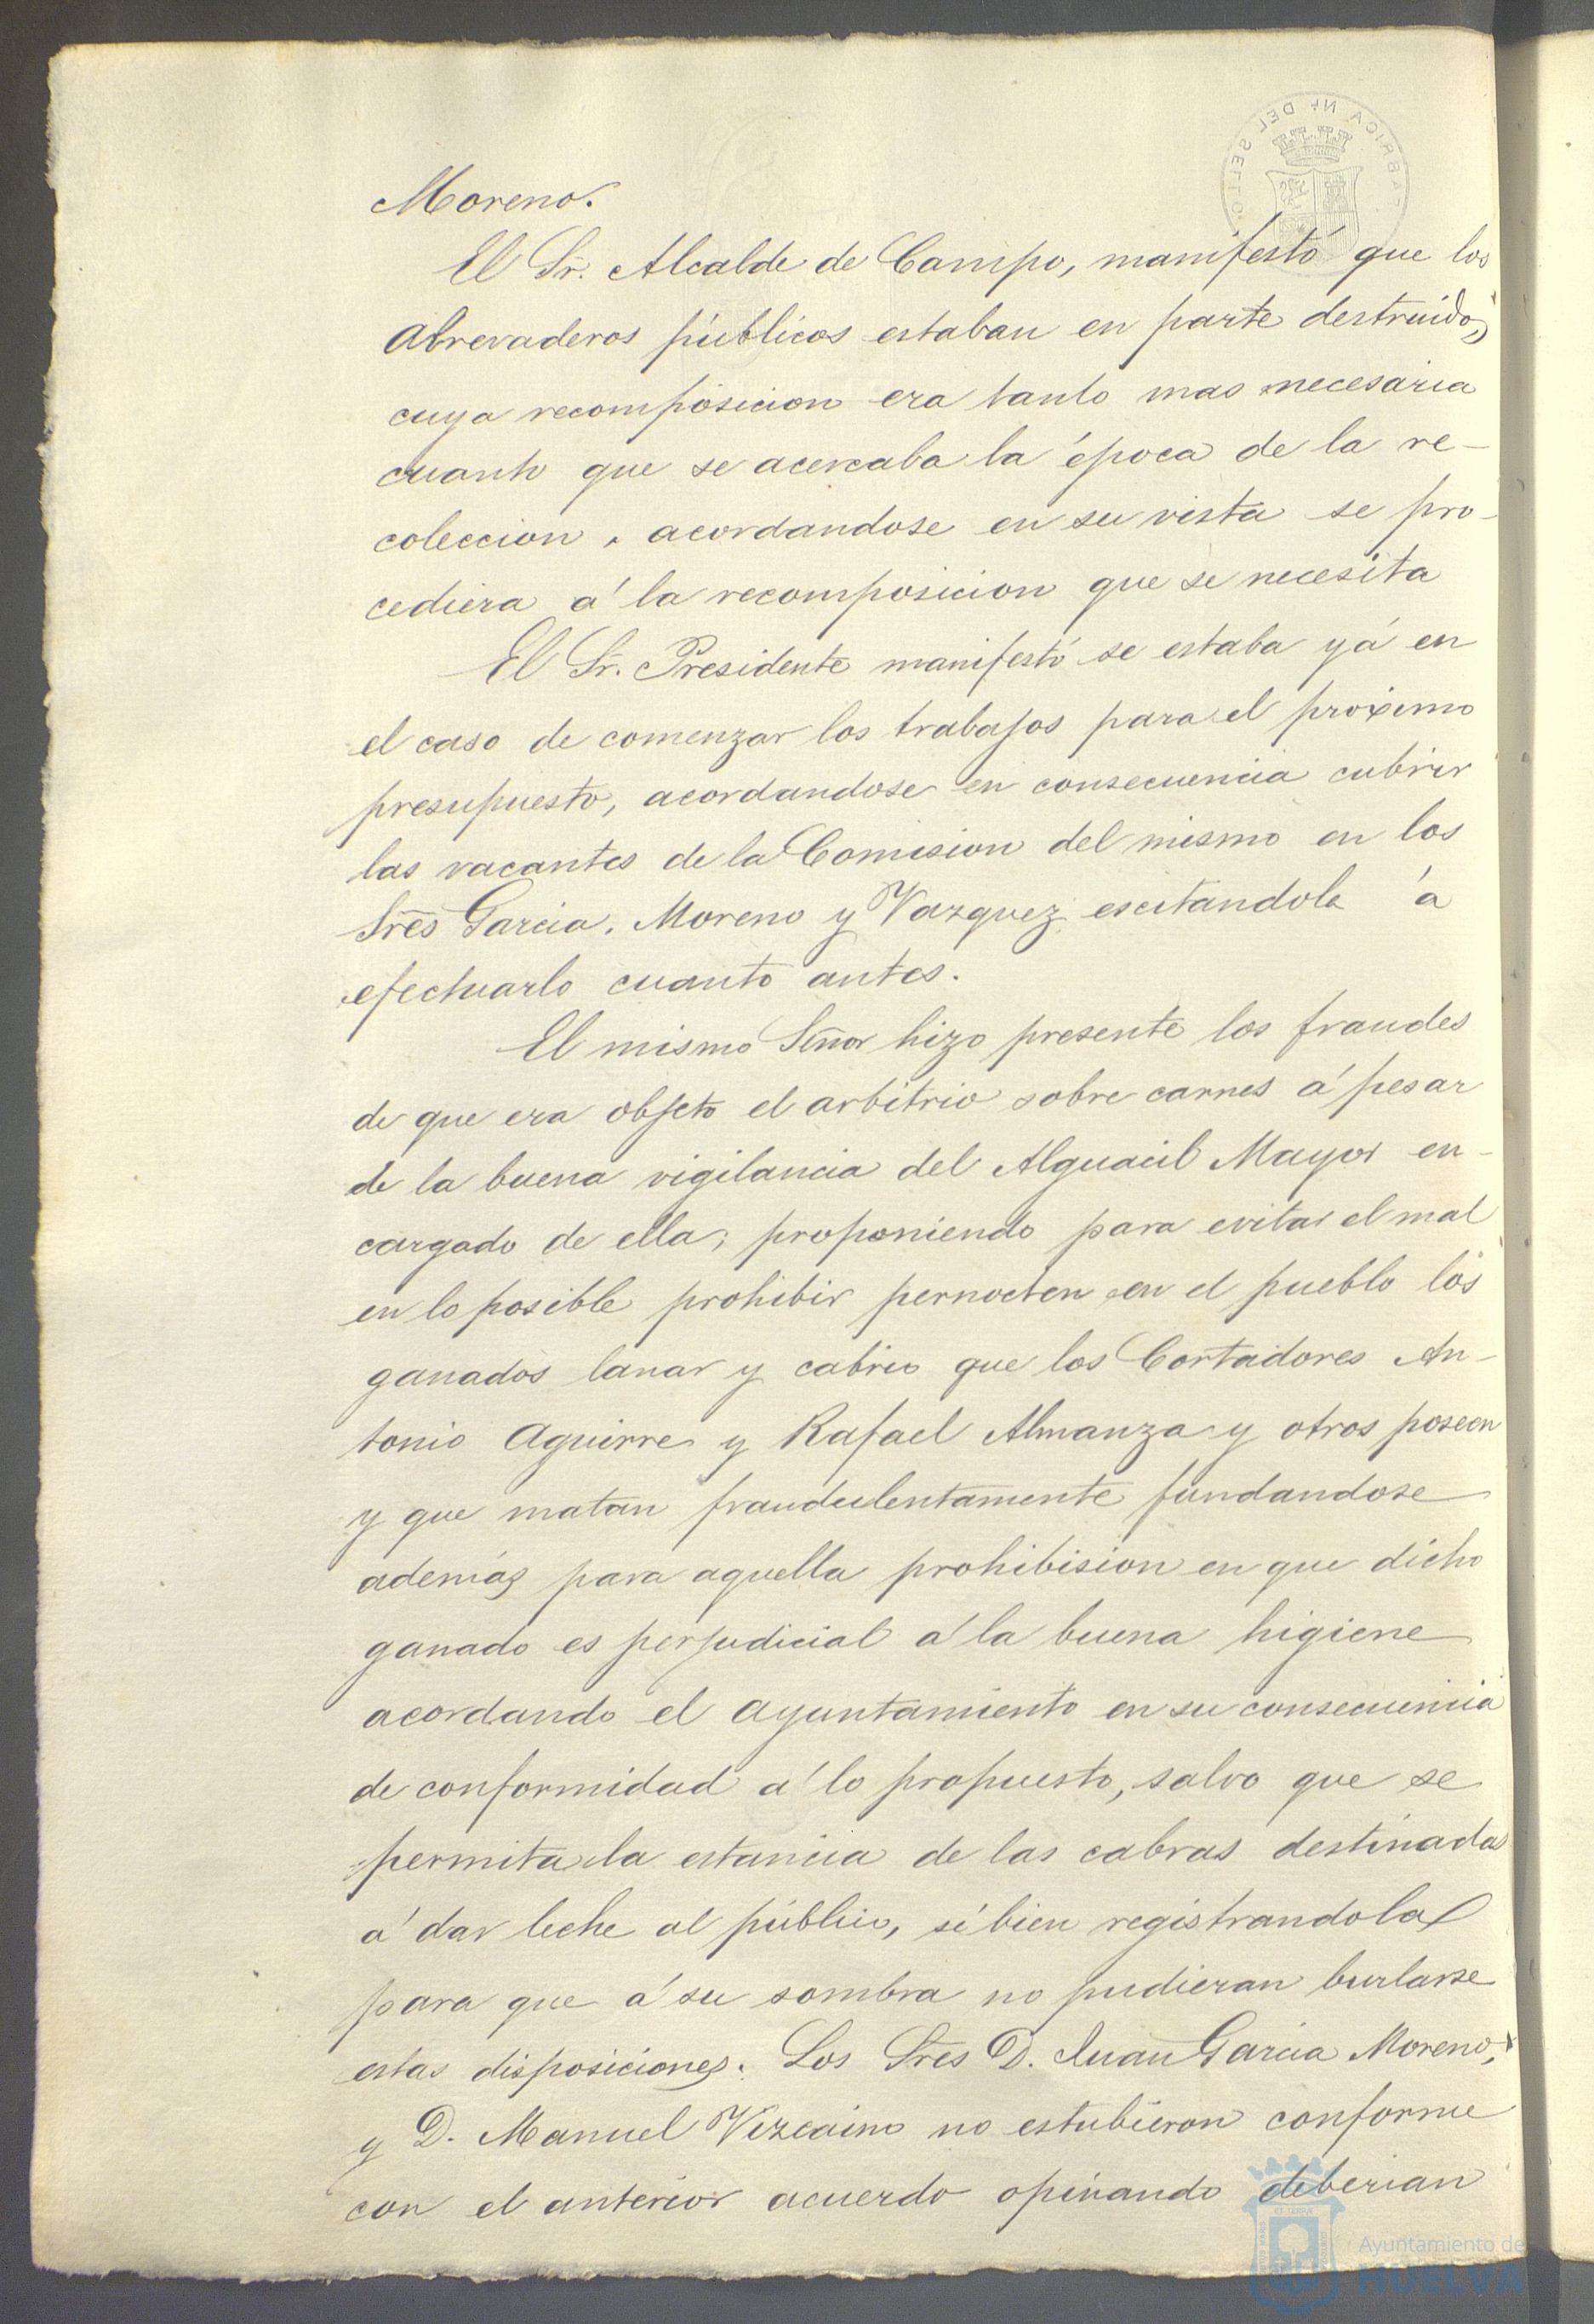 Moreno.
El Sr. Alcalde de Campo, manifestó que los
Abrevaderos públicos estaban en parte destruidos,
cuya recomposicion era tanto mas necesaria
cuanto que se acercaba la época de la re-
coleccion, acordandose en su vista se pro-
cediera á la recomposicion que se necesita
El Sr. Presidente manifestó se estaba yá en
el caso de comenzar los trabajos para el proximo
presupuesto, acordandose en consecuencia cubrir
las vacantes de la Comision del mismo en los
Sres Garcia, Moreno y Vazquez escitandole á
efectuarlo cuanto antes.
El mismo Señor hizo presente los fraudes
de que era objeto el arbitrio sobre carnes á pesar
de la buena vigilancia del Alguacil Mayor en-
cargado de ella; proponiendo para evitar el mal
en lo posible prohibir pernocten en el pueblo los
ganados lanar y cabrio que los Cortadores An-
tonio Aguirre y Rafael Almanza y otros poseen
y que matan fraudulentamente fundandose
además para aquella prohibision en que dicho
ganado es perjudicial á la buena higiene
acordando el Ayuntamiento en su consecuencia
de conformidad á lo propuesto, salvo que se
permita la estancia de las cabras destinadas
á dar leche al público, si bien registrandolas
para que á su sombra no pudieran burlarse
estas disposiciones. Los Sres D. Juan Garcia Moreno,
y D. Manuel Vizcaino no estubieron conforme
con el anterior acuerdo opinando deberian
Ayuntamiento de
HUELVA